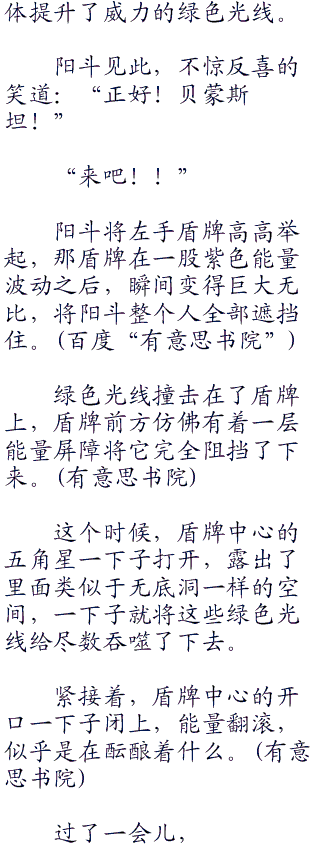 体提升了威力的绿色光线。
阳斗见此，不惊反喜的
笑道：“正好！贝蒙斯
坦！”
“来吧！！”
阳斗将左手盾牌高高举
起，那盾牌在一股紫色能量
波动之后，瞬间变得巨大无
比，将阳斗整个人全部遮挡
住。(百度“有意思书院”)
绿色光线撞击在了盾牌
上，盾牌前方仿佛有着一层
能量屏障将它完全阻挡了下
来。(有意思书院)
这个时候，盾牌中心的
五角星一下子打开，露出了
里面类似于无底洞一样的空
间，一下子就将这些绿色光
线给尽数吞噬了下去。
紧接着，盾牌中心的开
口一下子闭上，能量翻滚，
似乎是在酝酿着什么。(有意
思书院)
过了一会儿，